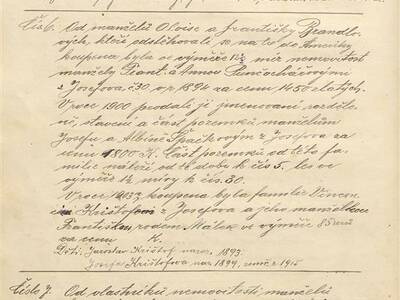 Čís 6. Od manželů Aloise a Františky Brandlo-
vých, kteří odstěhovali se na to do Ameriky
koupena byla ve výměře 12½ měr nemovitost
manžely Frant. a Annou
z Josefova č. 30. v r. 1894 za cenu 1450 zlatých.
V roce 1900 prodali již jmenovaní rozděle-
né stavení a část pozemků manželům
Josefu a Albině Špačkovým z Josefova za
cenu 1800 K. Část pozemků od této fa-
milie náleží od té doby k čís 5. les ve
výměře k čís. 30.
V roce koupena byla familie Vincen-
cem Krištofem z Josefova a jeho manželkou
Františkou rodem Málek ve výměře 85 arů
za cenu K.
Děti: Jaroslav Krištof naroz. 1893.
Josefa Krištofova nar 1899, zemř. v 1915
Číslo 7. Od vlastníků nemovitosti manželů